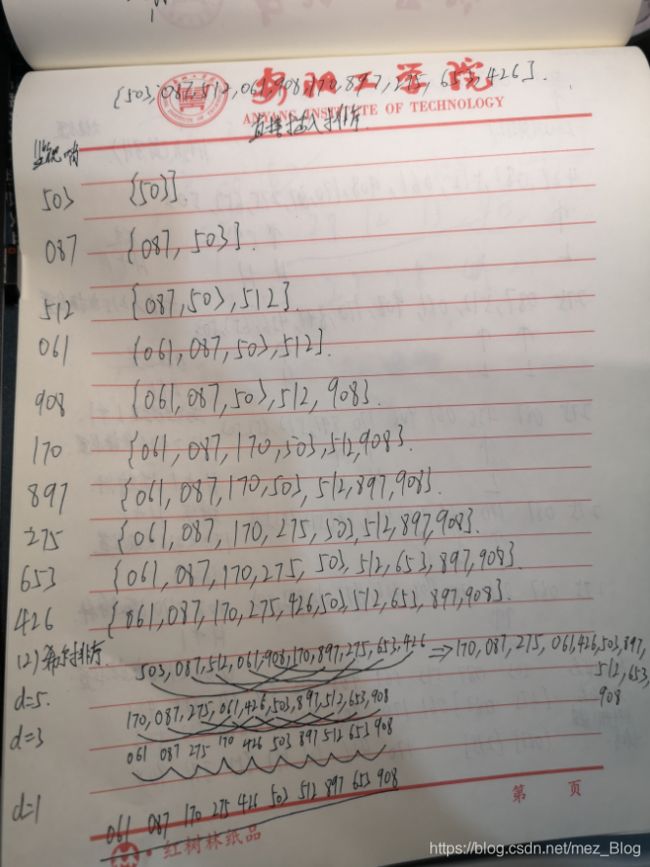 {503,087,512,061,908,170,897,275,653,426}.
安阳工学院
ANYANG INSTITUTE OF TECHNOLOGY
直接插入排序
监视哨
503 {503}
087 {087,503}.
512 {087,503,512}
061 {061,087,503,512}.
908 {061,087,503,512,908}
170 {061,087,170,503,512,908}.
897 {061,087,170,503,512,897,908}.
275 {061,087,170,275,503,512,897,908}.
653 {061,087,170,275,503,512,653,897,908}.
426 {061,087,170,275,426,503,512,653,897,908}.
(2) 希尔排序
503,087,512,061,908,170,897,275,653,426 ⇒170,087,275,061,426,503,897,
512,653,
908
d=5.
170,087,275,061,426,503,897,512,653,908
d=3
061 087 275 170 426 503 897 512 653 908
d=1
061 087 170 275 426 503 512 897 653 908
第 页
红树林纸品
https://blog.csdn.net/mez_Blog